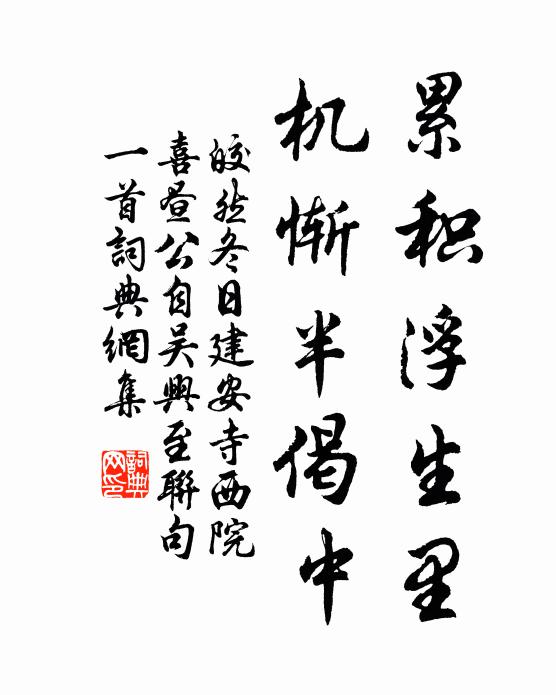 累积浮生里
机惭半偈中
皎然冬日建安寺西院
喜昼公自吴興至聯句
一首詞典網集
詞典网印